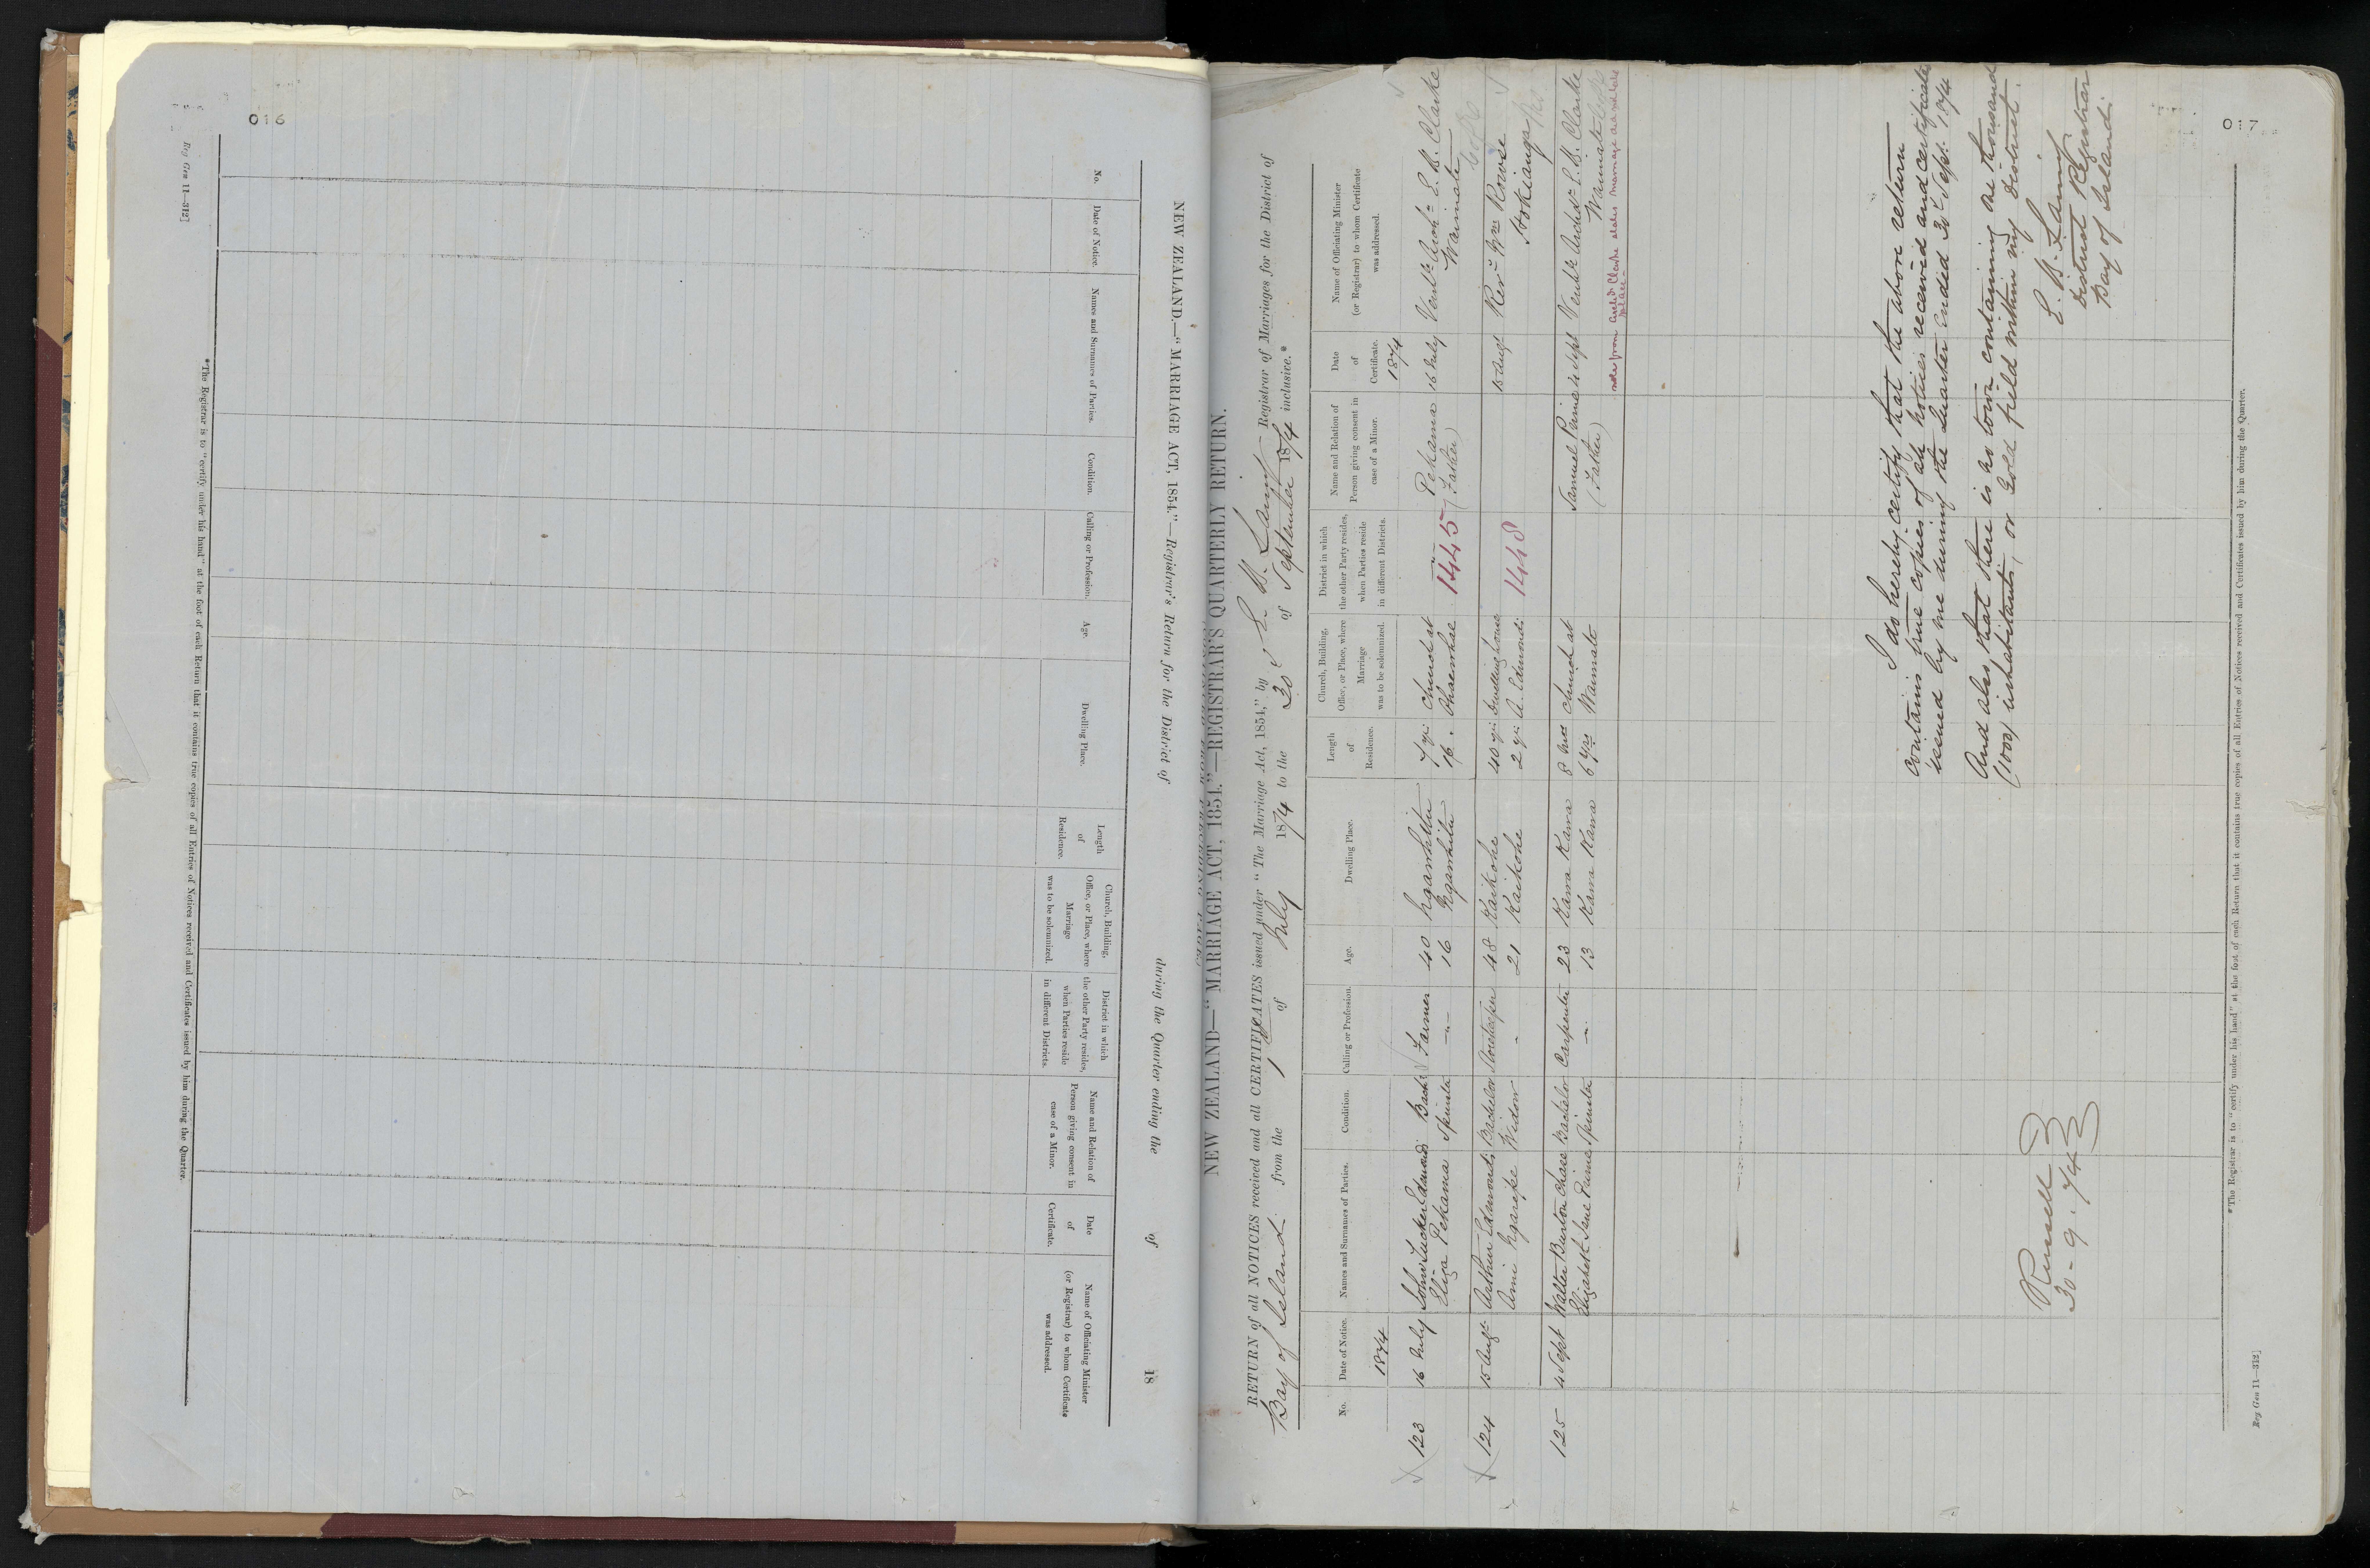 016
NEW ZEALAND.—"MARRIAGE ACT, 1854."—Registrar's Return for the District of during the Quarter ending the of 18
No.
Date of Notice.
Names and Surnames of Parties.
Condition.
Calling or Profession.
Age.
Dwelling Place.
Length
of
Residence.
Church, Building,
Office, or Place, where
Marriage
was to be solemnized.
District in which
the other Party resides,
when Parties reside
in different Districts.
Name and Relation of
Person giving consent in
case of a Minor.
Date
of
Certificate.
Name of Officiating Minister
(or Registrar) to whom Certificate
was addressed.
*The Registrar is to "certify under his hand" at the foot of each Return that it contains true copies of all Entries of Notices received and Certificates issued by him during the Quarter.
Reg Gen 11—312]
017
NEW ZEALAND—"MARRIAGE ACT, 1854."—REGISTRAR'S QUARTERLY RETURN.
RETURN of all NOTICES received and all CERTIFICATES issued under "The Marriage Act, 1854," by E. M. Laing Registrar of Marriages for the District of
Bay of Islands from the 1st of July 1874 to the 30th of September 1874 inclusive.*
No.
Date of Notice.
Names and Surnames of Parties.
Condition.
Calling or Profession.
Age.
Dwelling Place.
Length
of
Residence.
Church, Building,
Office, or Place, where
Marriage
was to be solemnized.
District in which
the other Party resides,
when Parties reside
in different Districts.
Name and Relation of
Person giving consent in
case of a Minor.
Date
of
Certificate.
Name of Officiating Minister
(or Registrar) to whom Certificate
was addressed.
1874 1874
123 16 July John Tucker Edmonds Bachr Farmer 40 Ngawhitu 7 yrs Church at — " — Pehama 16 July Venble Archn E. B. Clarke
Eliza Pehama Spinster — " — 16 Ngawhitu 16 . Ohaewhae 1445 (Father) Waimate
124 15 Augt Arthur Edmonds Bachelor Storekeeper 48 Kaikohe 40 yrs Dwelling house 15 Augt Revd Wm Rowse
Ami Ngaripe Widow " 21 Kaikohe 2 yrs A. Edmonds 1448 Hokianga
125 4 Sept Walter Burton Chase Bachelor Carpenter 23 Kawa Kawa 8 mos Church at Samuel Prime 4 Sept Venble Archdn E. B. Clarke
Elizabeth Jane Prime Spinster — " — 13 Kawa Kawa 6 yrs Waimate (Father) Waimate
note from Archd Clarke states marriage did not take
place
I do hereby certify that the above return
contains true copies of all notices received and certificates
issued by me during the quarter ended 30th Sept. 1874
And also that there is no town containing one thousand
(1000) inhabitants, or Gold field within my District.
E. M. Laing
District Registrar
Bay of Islands
Russell
30 - 9 - 74
*The Registrar is to "certify under his hand" at the foot of each Return that it contains true copies of all Entries of Notices received and Certificates issued by him during the Quarter.
Reg Gen 11—312]